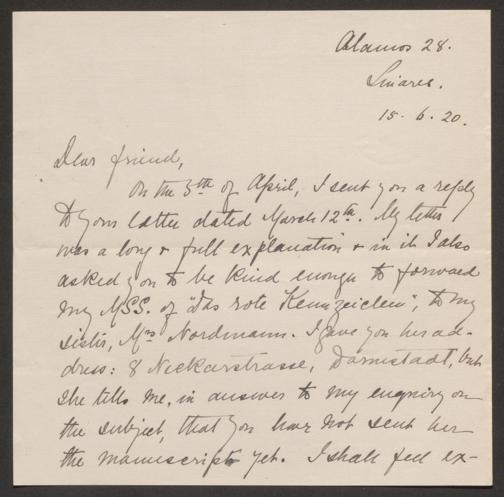 Alamos 28.
Linares.
15. 6. 20.
Dear friend,
On the 5th of April, I sent you a reply
to your letter dated March 12th. My letter
was a long & full explanation & in it I also
asked you to be kind enough to forward
my MSS. of "Das rote Kennzeichen", to my
sister, Mrs Nordmann. I gave you her ad-
dress: 8 Neckarstrasse, Darmstadt, but
she tells me, in answer to my enquiry on
the subject, that you have not sent her
the manuscript yet. I shall feel ex-